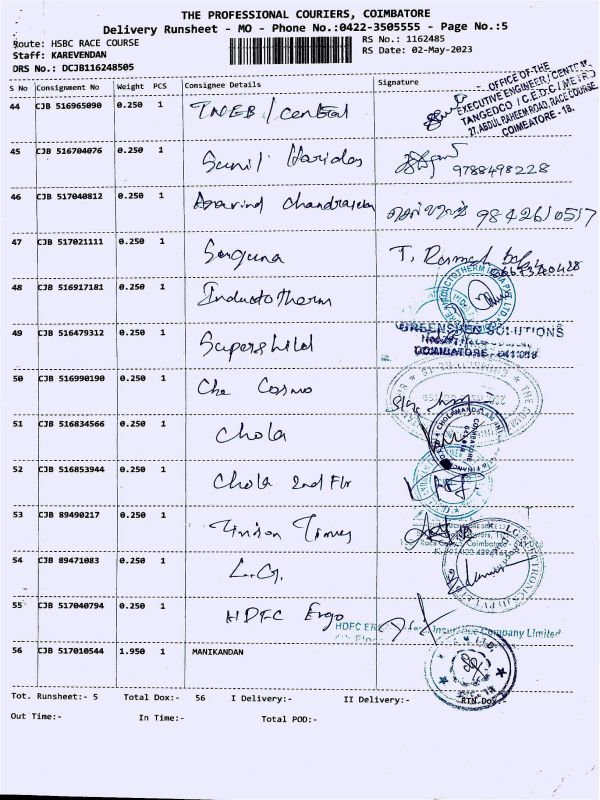 THE PROFESSIONAL COURIERS, COIMBATORE
Delivery Runsheet - MO - Phone No.:0422-3505555 - Page No.:5
Route: HSBC RACE COURSE
RS No.: 1162485
Staff: KAREVENDAN
RS Date: 02-May-2023
DRS No.: DCJB116248505
S No Consignment No Weight PCS Consignee Details Signature
OFFICE OF THE
EXECUTIVE ENGINEER / CENTRAL
TANGEDCO / C.E.D.C / METRO
27, ABDUL RAHEEM ROAD, RACE COURSE,
COIMBATORE - 18.
44 CJB 516965090 0.250 1 TNEB / Central
45 CJB 516704076 0.250 1 Sunil Haridas 9788498228
46 CJB 517040812 0.250 1 Aravind Chandrasekar
47 CJB 517021111 0.250 1 Suguna
48 CJB 516917181 0.250 1 Inductotherm
GREENSHEN SOLUTIONS
COIMBATORE - 641 018
49 CJB 516479312 0.250 1 Supershild
50 CJB 516990190 0.250 1 Che Cosmo
51 CJB 516834566 0.250 1 Chola
52 CJB 516853944 0.250 1 Chola 2nd Flr
53 CJB 89490217 0.250 1 Union Times
54 CJB 89471083 0.250 1 L.G.
55 CJB 517040794 0.250 1 HDFC Ergo
HDFC ER Insurance Company Limited
56 CJB 517010544 1.950 1 MANIKANDAN
Tot. Runsheet:- 5 Total Dox:- 56 I Delivery:- II Delivery:- RTN Dox:-
Out Time:- In Time:- Total POD:-